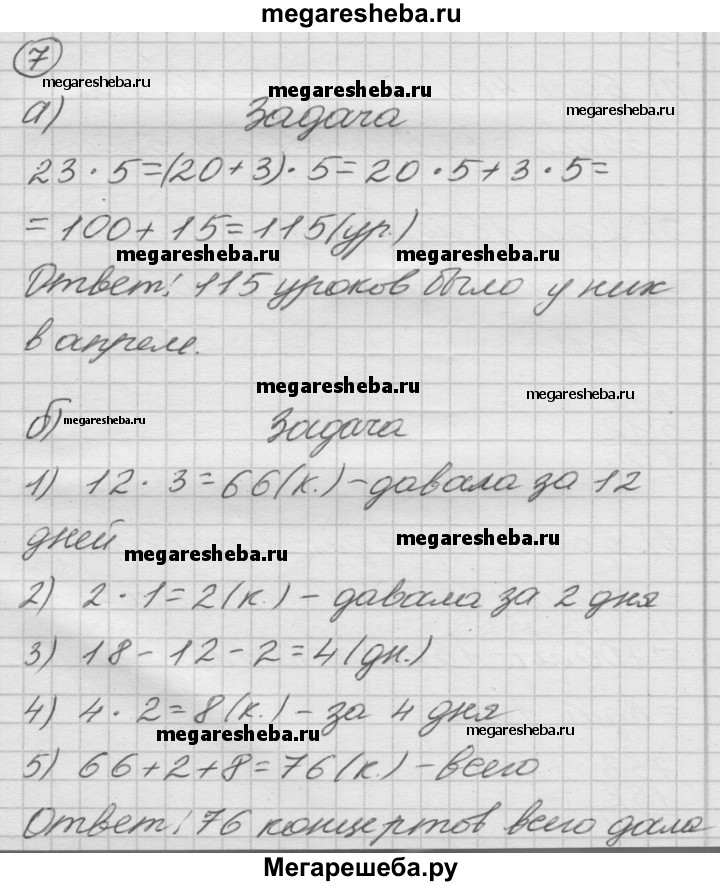 megaresheba.ru
7
megaresheba.ru
megaresheba.ru
а) Задача
megaresheba.ru
23 · 5 = (20 + 3) · 5 = 20 · 5 + 3 · 5 =
= 100 + 15 = 115 (ур.)
megaresheba.ru megaresheba.ru
Ответ: 115 уроков было у них
в апреле.
megaresheba.ru
megaresheba.ru
б) megaresheba.ru Задача
1) 12 · 3 = 66 (к.) – давала за 12
дней
megaresheba.ru
megaresheba.ru
2) 2 · 1 = 2 (к.) – давала за 2 дня
3) 18 - 12 - 2 = 4 (дн.)
4) 4 · 2 = 8 (к.) – за 4 дня
megaresheba.ru
megaresheba.ru
5) 66 + 2 + 8 = 76 (к.) – всего
Ответ: 76 концертов всего дала
Мегарешеба.ру